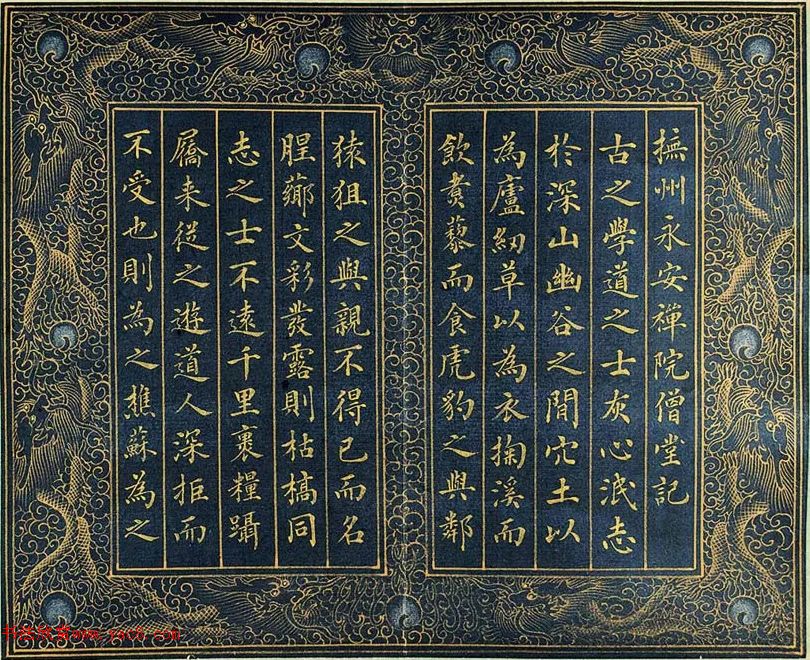 撫州永安禪院僧堂記
古之學道之士灰心泯志
於深山幽谷之間穴土以
為廬紉草以為衣掬溪而
飲煑藜而食虎豹之與鄰
猿狙之與親不得已而名
腥薌文彩發露則枯槁同
志之士不遠千里裹糧躡
屩来從之遊道人深拒而
不受也則為之樵蘇為之